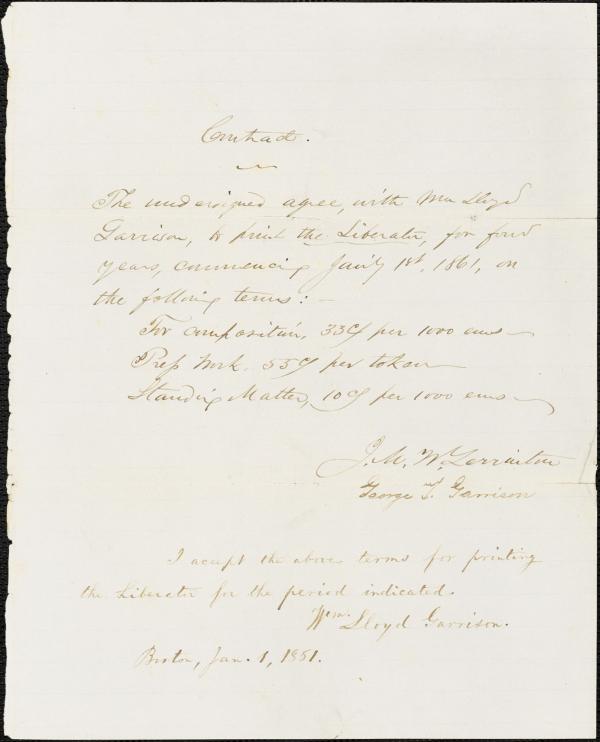 Contract.
The undersigned agree, with Wm Lloyd
Garrison, to print the Liberator, for four
years, commencing Jan'y 1st, 1861, on
the following terms: —
For composition, 33c/ per 1000 ems —
Press Work. 55c/ per token —
Standing Matter, 10c/ per 1000 ems —
J. M. W. Yerrinton
George T. Garrison
I accept the above terms for printing
the Liberator for the period indicated.
Wm. Lloyd Garrison.
Boston, Jan. 1, 1861.